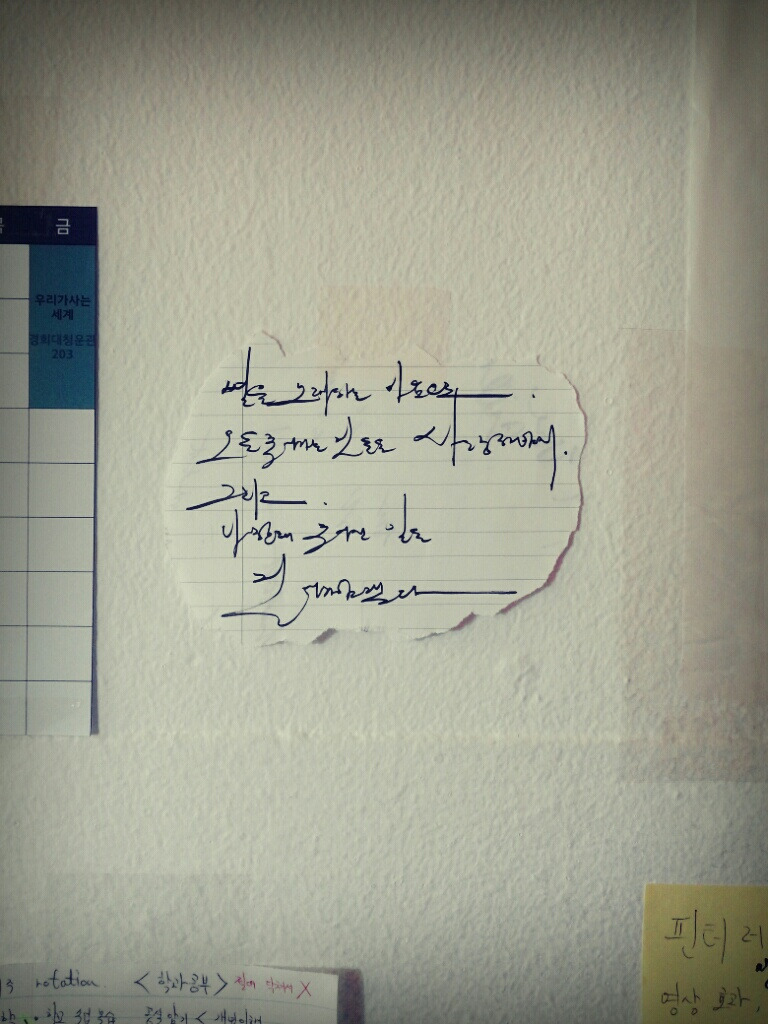 금
우리가사는
세계
경희대청운관
203
별을 노래하는 마음으로.
모든 죽어가는 것들을 사랑해야지.
그리고.
나한테 주어진 길을
걸어가야겠다
핀터레
영상 효과,
rotation. <학과공부> X